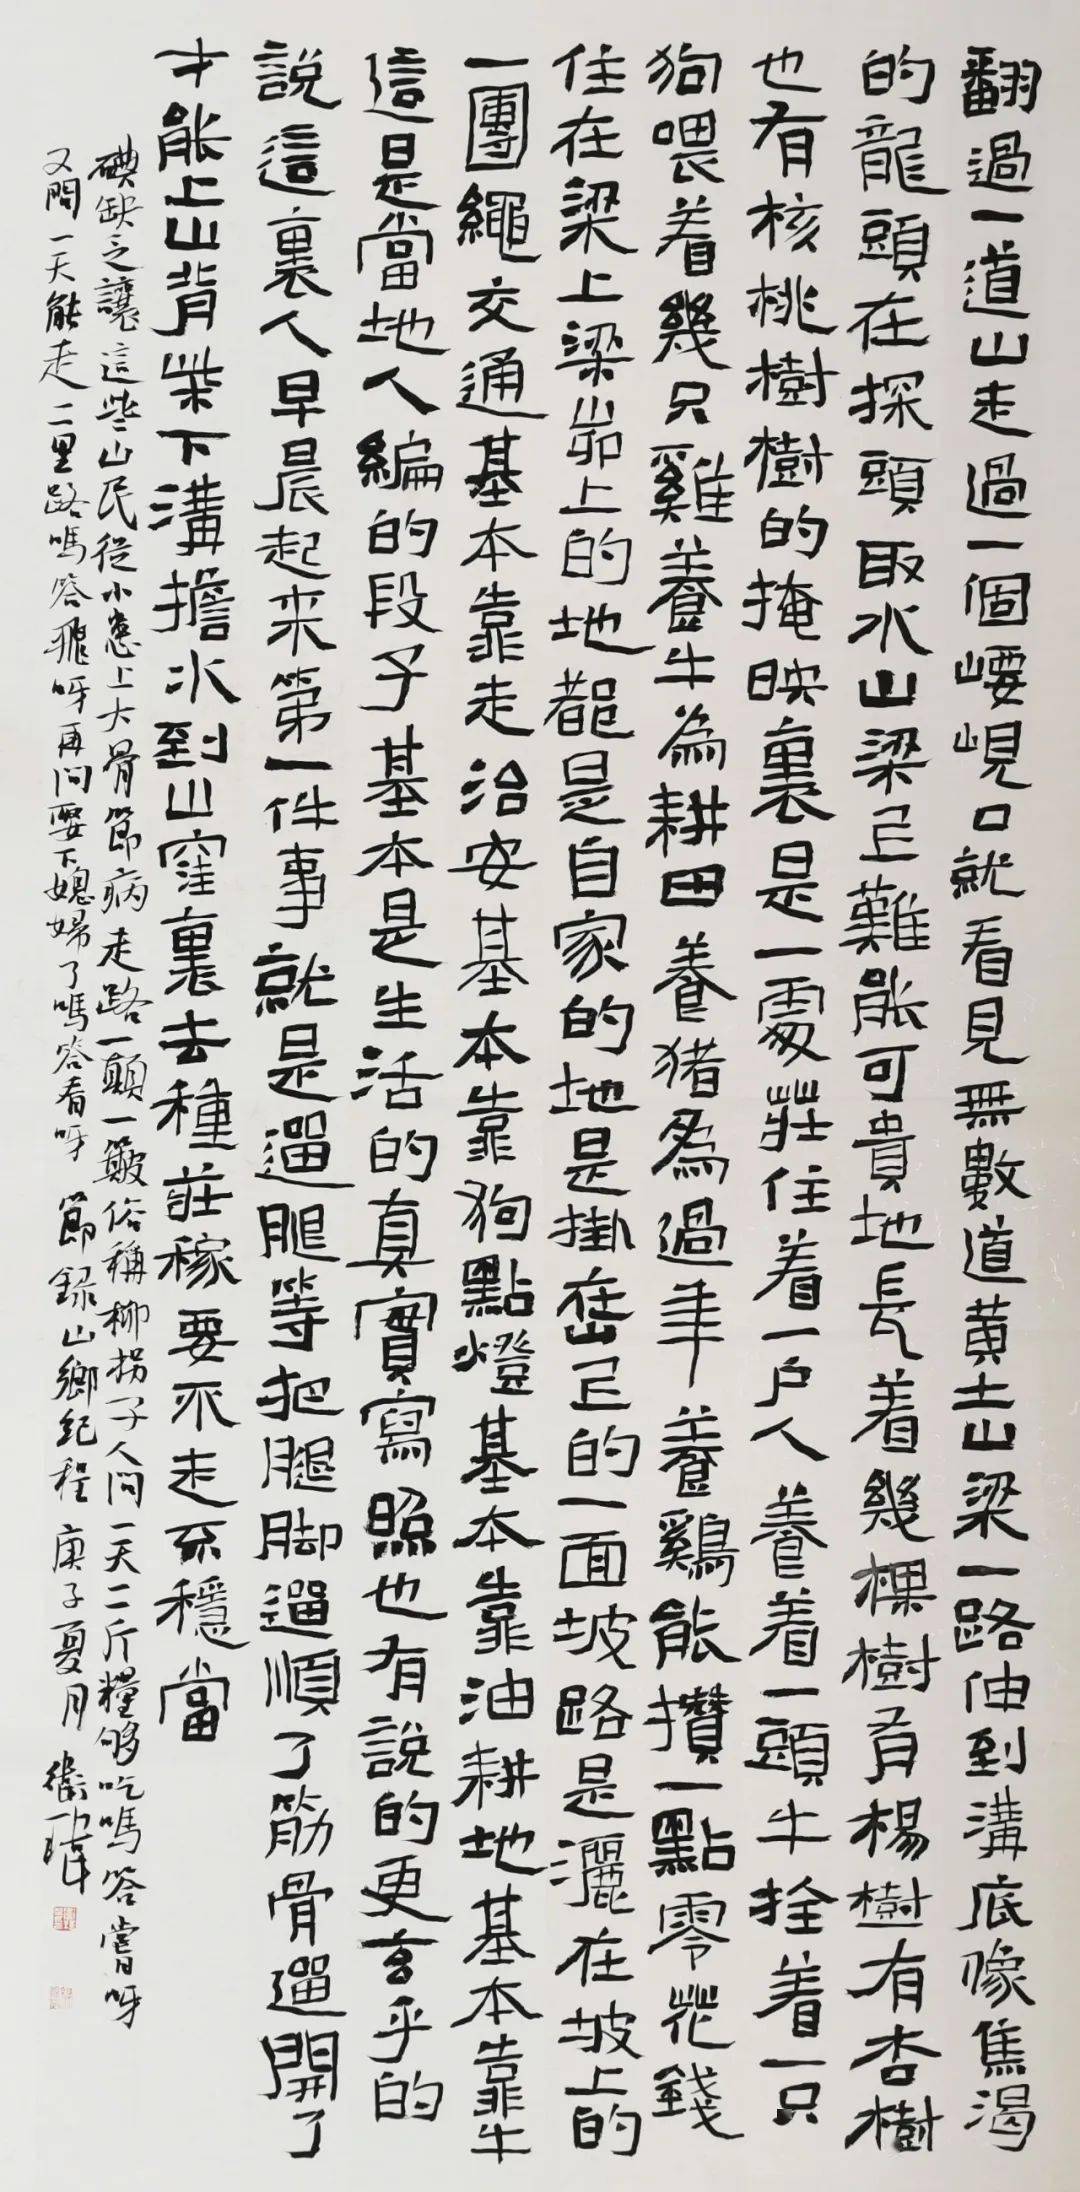 翻過一道山走過一個崾峴口就看見無數道黄土山梁一路伸到溝底像焦渴
的龍頭在探頭取水山梁上難能可貴地長着幾棵樹有楊樹有杏樹
也有核桃樹樹的掩映裏是一處莊住着一户人養着一頭牛拴着一只
狗喂着幾只雞養牛為耕田養猪為過年養鷄能攢一點零花錢
住在梁上梁峁上的地都是自家的地是掛在山上的一面坡路是灑在坡上的
一團繩交通基本靠走治安基本靠狗點燈基本靠油耕地基本靠牛
這是當地人編的段子基本是生活的真實寫照也有說的更玄乎的
說這裏人早晨起来第一件事就是遛腿等把腿脚遛順了筋骨遛開了
才能上山背柴下溝擔水到山窪裏去種莊稼要不走不穩當
碘缺乏讓這些山民從小患上大骨節病走路一顛一簸俗稱柳拐子人問一天二斤糧够吃嗎答嘗呀
又問一天能走二里路嗎答飛呀再问娶下媳婦了嗎答看呀 節録山鄉紀程 庚子夏月